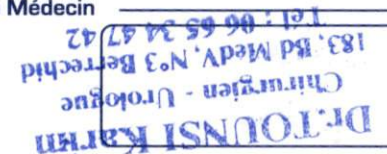 Médecin
Dr.TOUNSI Karim
Chirurgien - Urologue
183, Bd MedV, N°3 Berrechid
Tél : 06 65 34 47 42